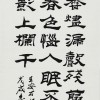 香燼漏聲殘
春色惱人眠不
影上闌干
王安石
戊戌